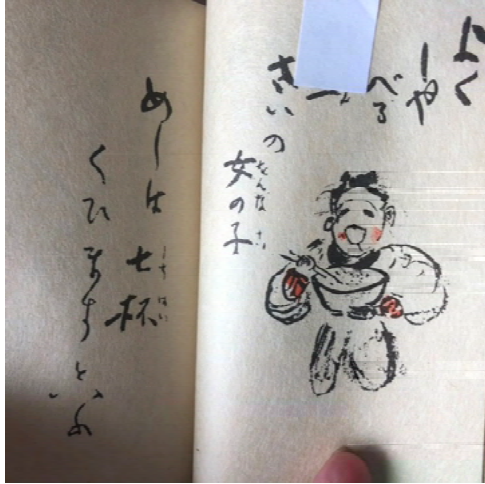 よく
しゃ
べる
きいの
女の子
をんな
めしは七杯
しちはい
くひますといふ